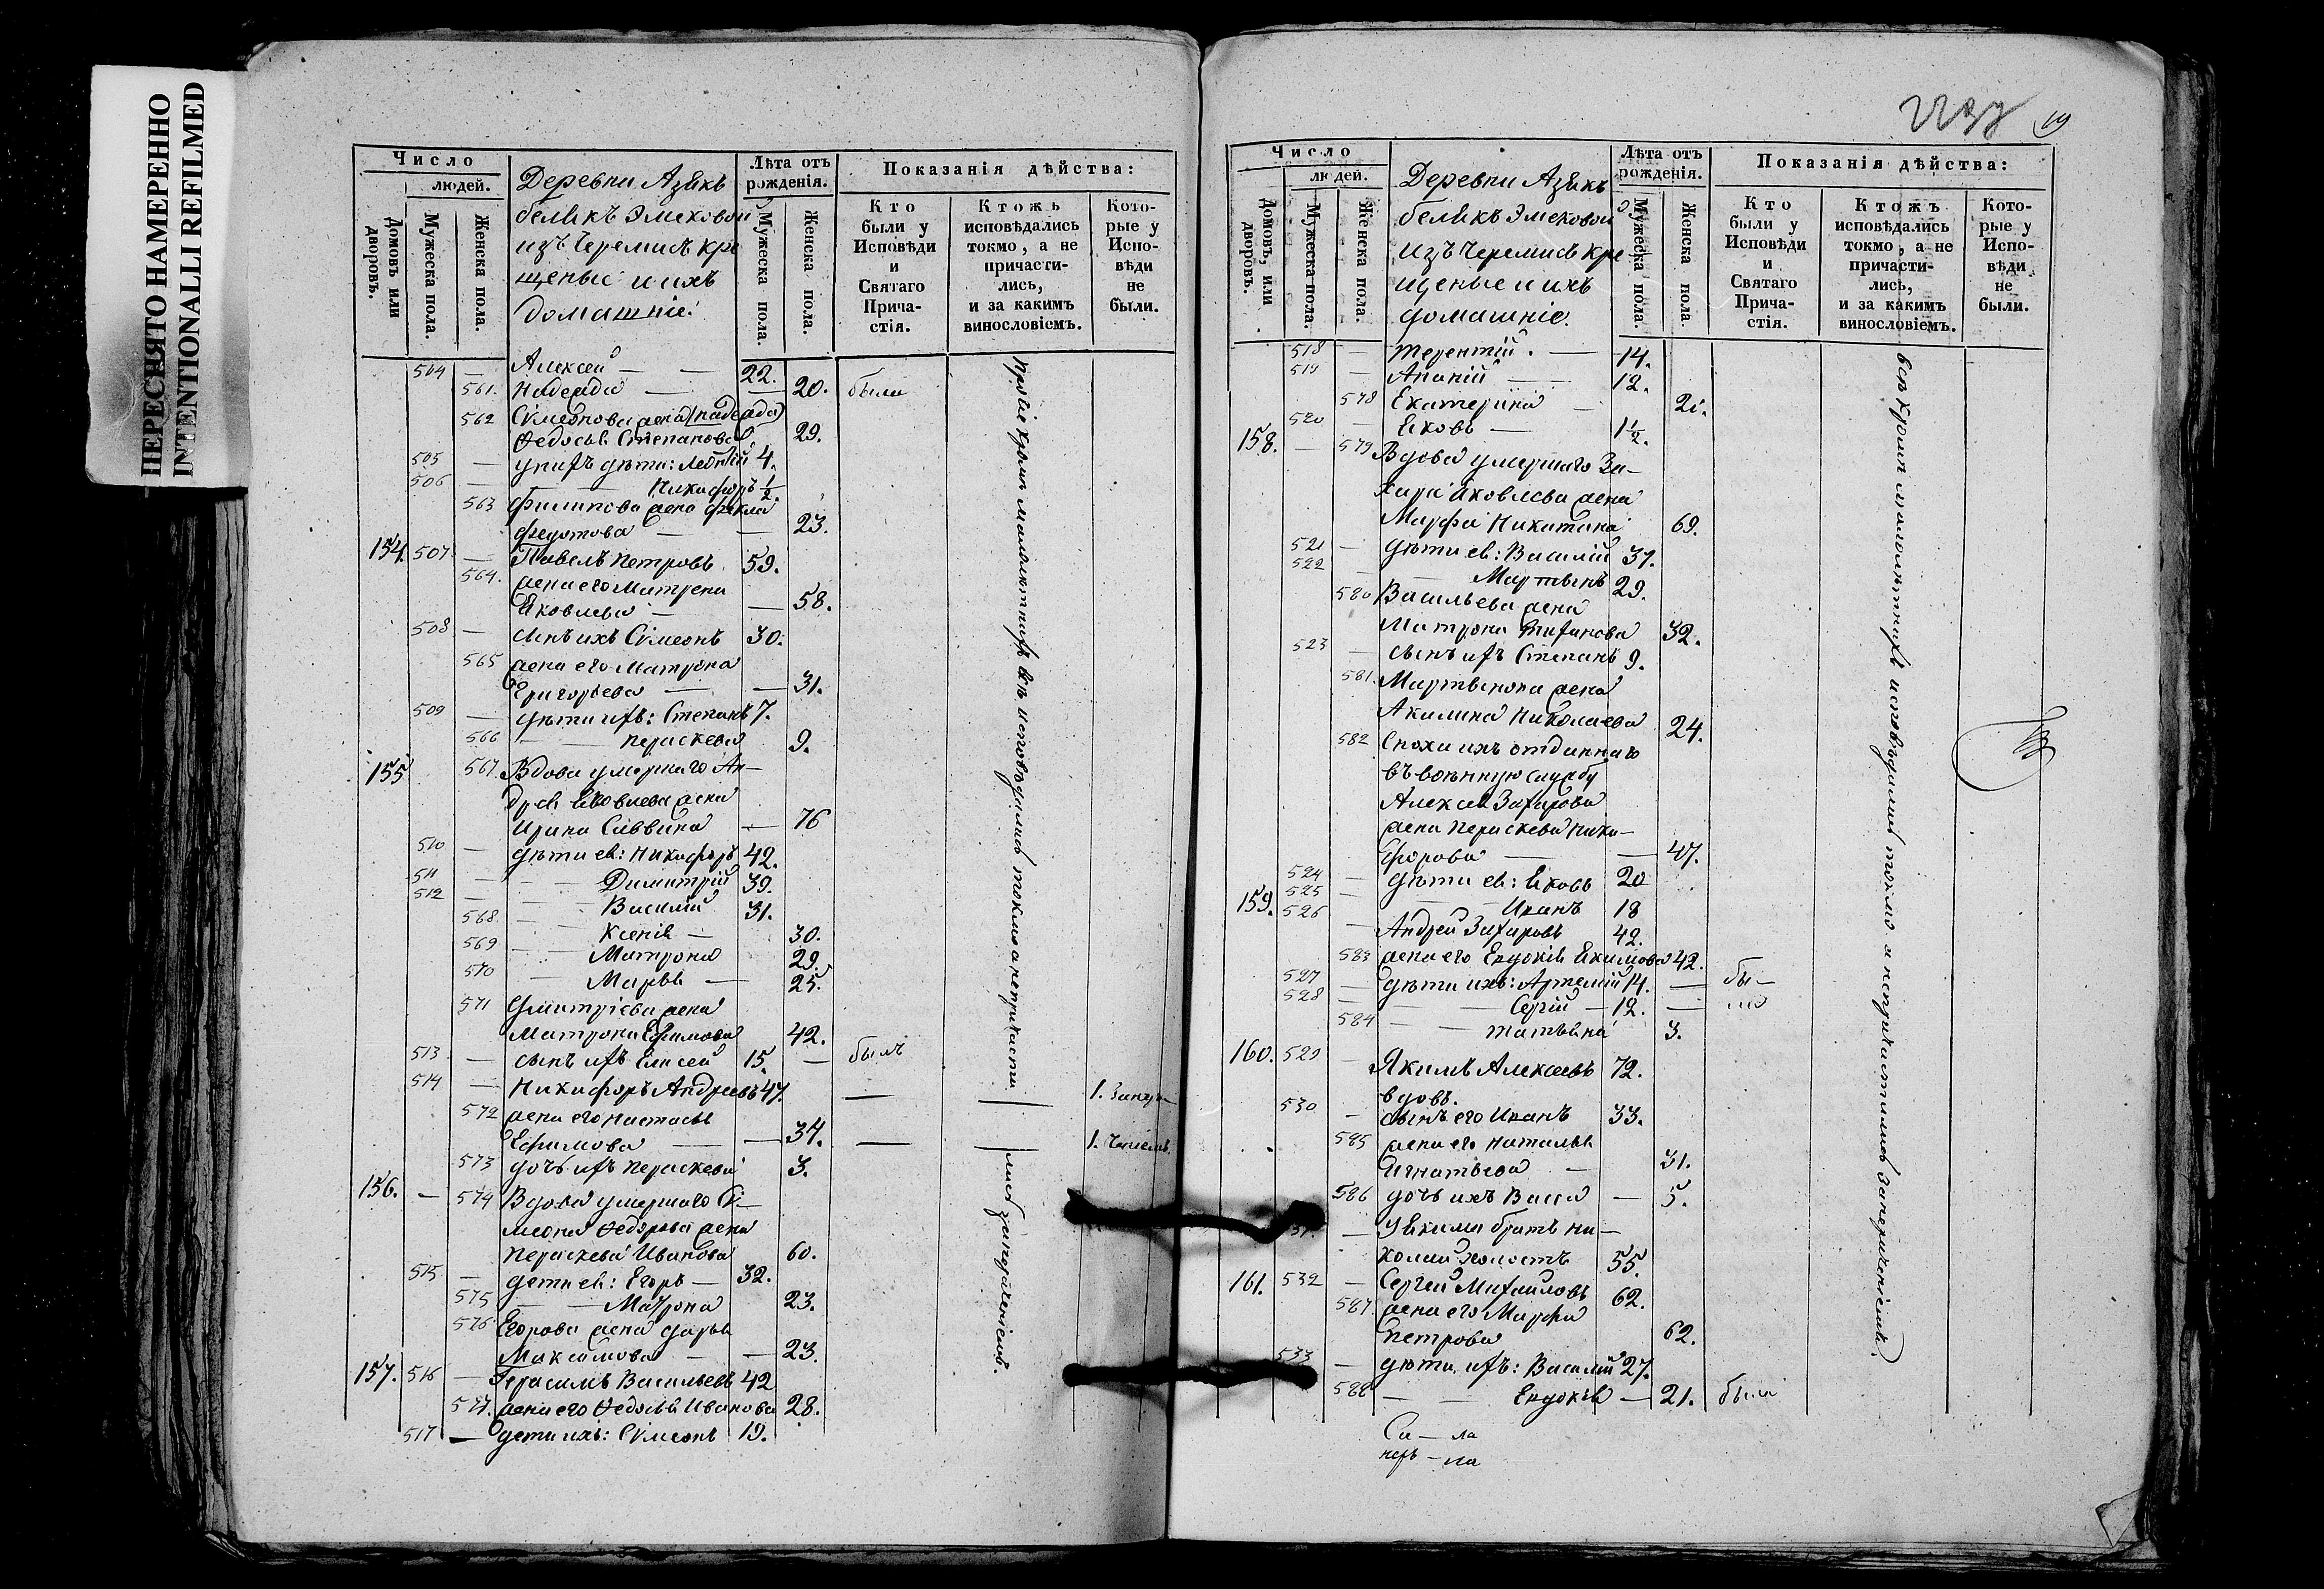 ПЕРЕСНЯТО НАМЕРЕННО
INTENTIONALLI REFILMED
Число
людей.
Домовъ или дворовъ.
Мужеска пола.
Женска пола.
Деревни Азякъ
белякъ Эмековой
изъ Черемисъ кре
щеные и ихъ
домашніе:
Лѣта отъ рожденія.
Мужеска пола.
Женска пола.
Показанія дѣйства:
Кто были у Исповѣди и Святаго Прича-стія.
Ктожъ исповѣдались токмо, а не причасти-лись, и за какимъ винословіемъ.
Кото-рые у Испо-вѣди не были.
504 — Алексей — — 22.
561. Надежда — — 20. была
562 Симеонова жена (надежда)
Ѳедосья Степанова 29.
505 — у нихъ дѣти: Леонтій 4.
506 — — Никифоръ ½.
563 Филипова жена Фекла
Федотова — — 23.
154. 507 — Павелъ Петровъ 59.
564. жена его Матрена
Яковлева — — 58.
508 — сынъ ихъ Симеонъ 30.
565 жена его Матрона
Григорьева — — 31.
509 — дѣти ихъ: Степанъ 7.
566 — Параскева 9.
155 567. Вдова умершаго Ан—
дрея Яковлева жена
Ирина Саввина — 76
510 — дѣти ея: Никифоръ 42.
511 — — — Димитрій 39.
512 — — — Василій 31.
568 — — Ксенія — 30.
569 — — Матрона 29.
570 — Марья — 25.
571 Дмитріева жена
Матрона Ефимова 42.
513 — сынъ ихъ Елисей 15. — былъ
514 — Никифоръ Андреевъ 47. — — 1.
572 жена его Настасья
Ефимова — — 37. — 1.
573 дочь ихъ Параскева 3.
156. — 574 Вдова умершаго Си—
меона Ѳедорова жена
Параскева Иванова 60.
515 — дети ея: Егоръ — 32.
575 — — Матрона 23.
576 Егорова жена Дарья
Максимова — — 23.
157. 516 — Герасимъ Васильевъ 42
577. жена его Ѳедосья Иванова 28.
517 — дети ихъ: Симеонъ 19.
Прочіе кромѣ малолѣтнихъ всѣ исповѣдались токмо а непричасти
лись занерачениемъ.
19
Число
людей.
Домовъ, или дворовъ.
Мужеска пола.
Женска пола.
Деревни Азякъ
белякъ Эмековой
изъ Черемисъ кре—
щеные и ихъ
домашніе.
Лѣта отъ рожденія.
Мужеска пола.
Женска пола.
Показанія дѣйства:
Кто были у Исповѣди и Святаго Прича-стія.
Ктожъ исповѣдались токмо, а не причасти-лись, и за какимъ винословіемъ.
Кото-рые у Испо-вѣди не были.
518 — Терентій. — 14.
519 — Ананій — 12.
578 Екатерина — 21.
520 — Яковъ — 1½.
158. — 579 Вдова умершаго За—
хара Яковлева жена
Марфа Никитина 69.
521 — дѣти ея: Василій 37.
522 — — Мартынъ 29.
580 Васильева жена
Матрона Степанова 32.
523 — сынъ ихъ Степанъ 9.
581. Мартынова жена
Акилина Николаева 24.
582 Сноха ихъ отданнаго
въ военную службу
Алексея Захарова
жена Параскева Ники—
форова — — 47.
524 — дѣти ея: Яковъ 20
525 — — Иванъ 18
159. 526 — Андрей Захаровъ 42.
583 жена его Евдокія Екимова 42.
527 — дѣти ихъ: Артемій 14. — бы—
528 — — Сергій — 12. — ли
584 — — Татьяна 3.
160. 529 — Якимъ Алексеевъ 72.
вдовъ.
530 — сынъ его Иванъ 33.
585 жена его Наталья
Игнатьева — 31.
586 дочь ихъ Васса — 5.
531. — у Якима братъ Ни—
колай холостъ 55.
161. 532 — Сергей Михайловъ 62.
587. жена его Марфа
Петрова 62.
533 — дѣти ихъ: Василій 27.
588 — — Евдокія — 21. была
всѣ кромѣ малолѣтнихъ исповѣдались токмо а непричастились занерачениемъ.